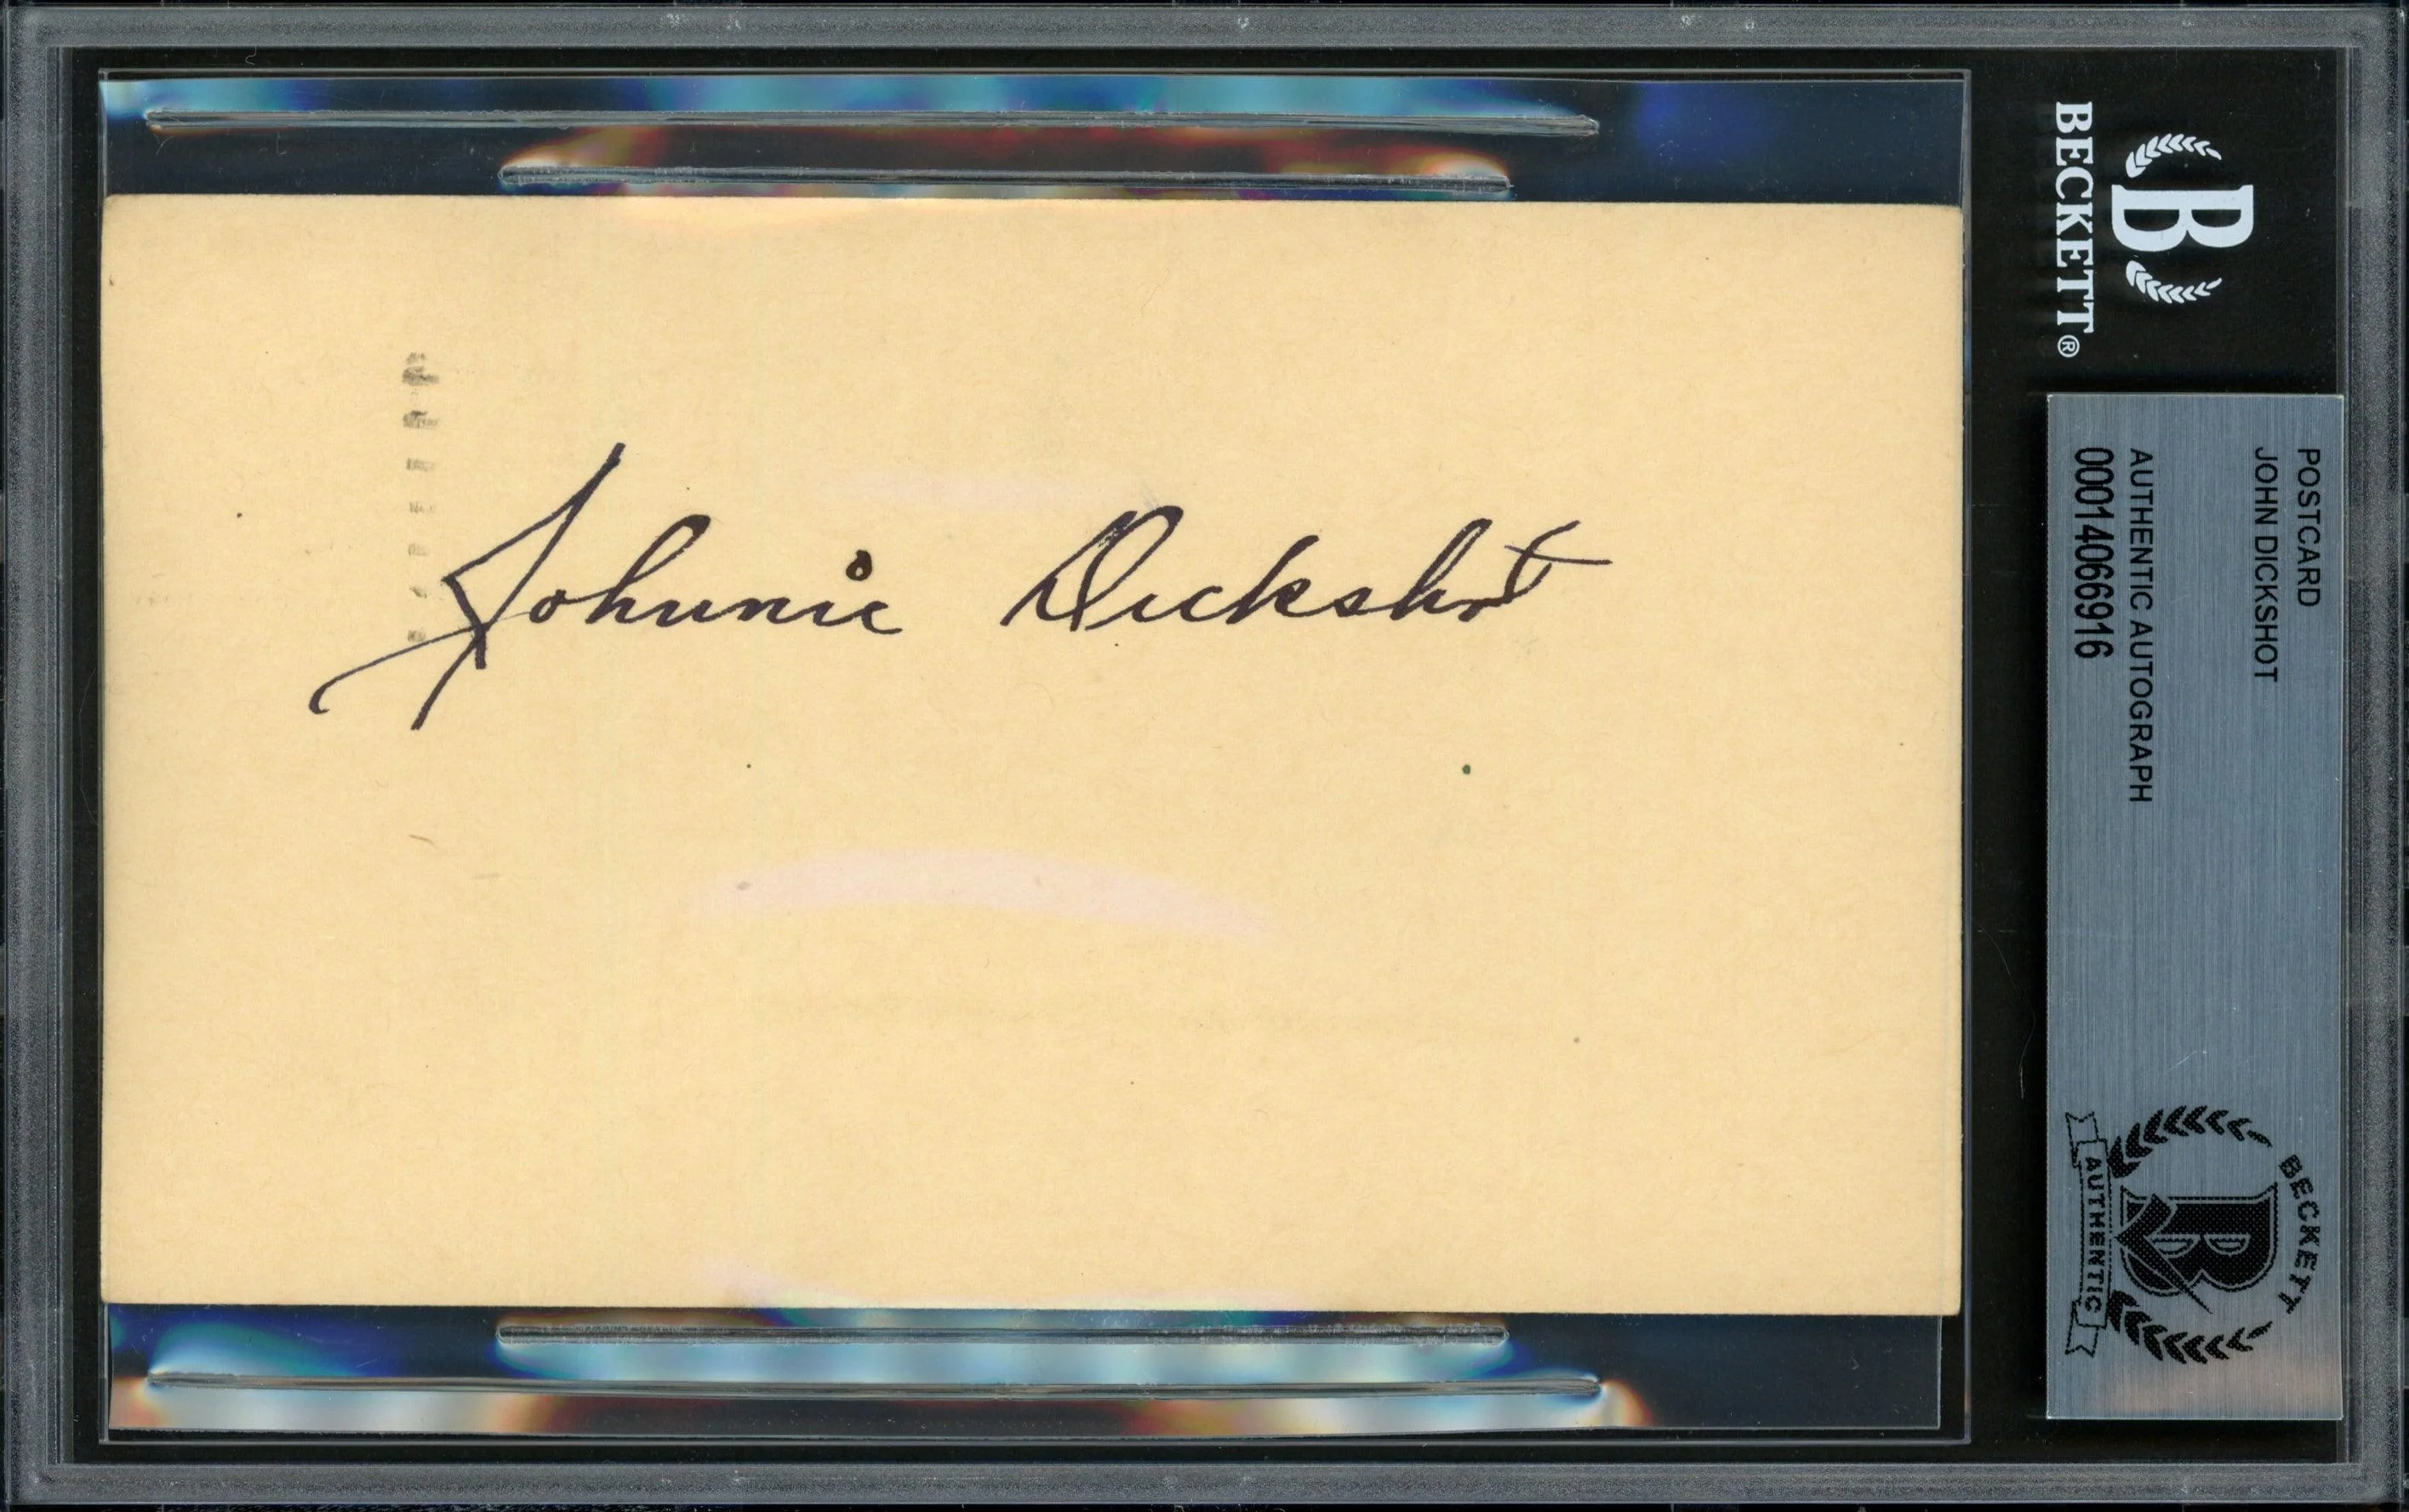 Johnnie Dickshot
BECKETT®
B
POSTCARD
JOHN DICKSHOT
AUTHENTIC AUTOGRAPH
00014066916
BECKETT
B
AUTHENTIC